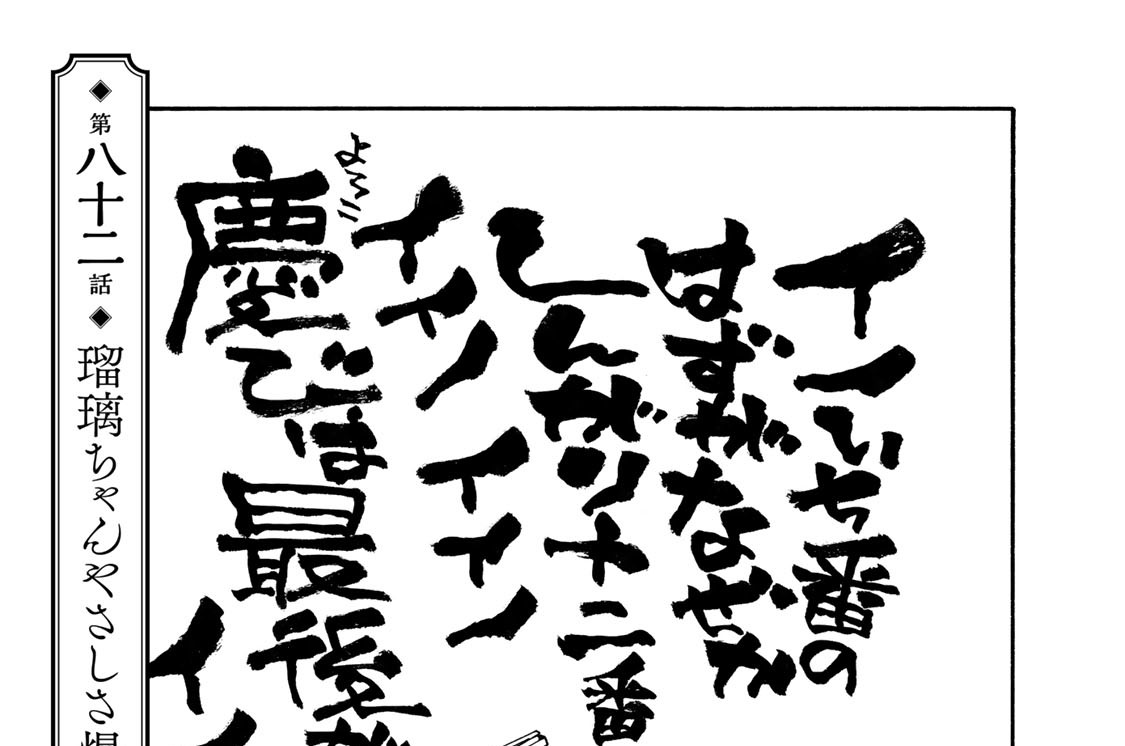 イノいち番の
はずがなぜか
しんがり十二番
イイノイイノ
よろこ
慶びは最後が
イイ
◆第八十二話◆瑠璃ちゃんやさしさ